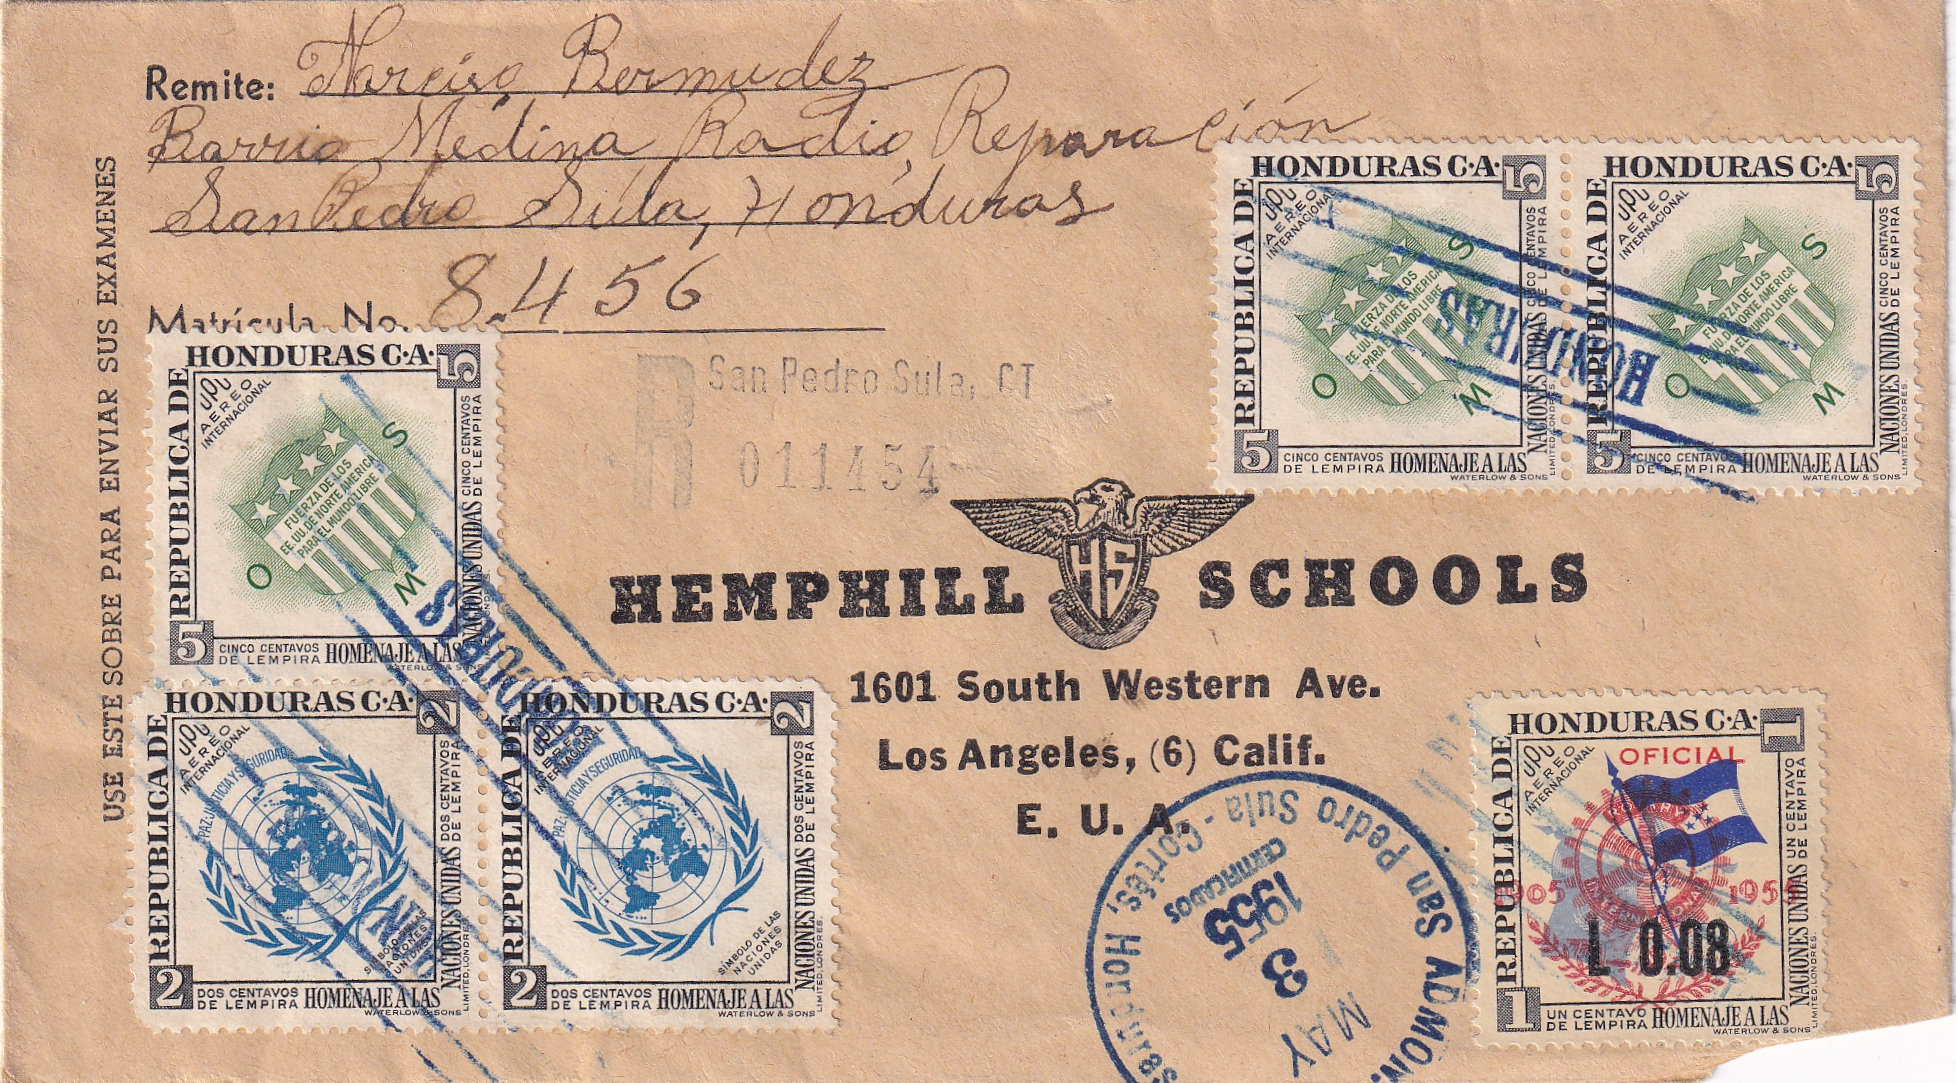 Remite: Narciso Bermudez
Barrio Medina Radio Reparación
San Pedro Sula, Honduras
Matrícula No. 8456
USE ESTE SOBRE PARA ENVIAR SUS EXAMENES
R San Pedro Sula, CT
011454
HEMPHILL HS SCHOOLS
1601 South Western Ave.
Los Angeles, (6) Calif.
E. U. A.
HONDURAS C·A· 5
REPUBLICA DE
UPU
AEREO
INTERNACIONAL
OMS
FUERZA DE LOS
EE.UU. DE NORTE AMERICA
PARA EL MUNDO LIBRE
CINCO CENTAVOS
DE LEMPIRA
NACIONES UNIDAS
5 CINCO CENTAVOS
DE LEMPIRA HOMENAJE A LAS
WATERLOW & SONS
LIMITED, LONDRES.
HONDURAS C·A· 5
REPUBLICA DE
UPU
AEREO
INTERNACIONAL
OMS
FUERZA DE LOS
EE.UU. DE NORTE AMERICA
PARA EL MUNDO LIBRE
CINCO CENTAVOS
DE LEMPIRA
NACIONES UNIDAS
5 CINCO CENTAVOS
DE LEMPIRA HOMENAJE A LAS
WATERLOW & SONS
LIMITED, LONDRES.
HONDURAS
HONDURAS C·A· 5
REPUBLICA DE
UPU
AEREO
INTERNACIONAL
OMS
FUERZA DE LOS
EE.UU. DE NORTE AMERICA
PARA EL MUNDO LIBRE
CINCO CENTAVOS
DE LEMPIRA
NACIONES UNIDAS
5 CINCO CENTAVOS
DE LEMPIRA HOMENAJE A LAS
WATERLOW & SONS
HONDURAS
HONDURAS C·A· 2
REPUBLICA DE
UPU
AEREO
INTERNACIONAL
PAZ, JUSTICIA Y SEGURIDAD
SIMBOLO DE LAS
NACIONES
UNIDAS
DOS CENTAVOS
DE LEMPIRA
NACIONES UNIDAS
2 DOS CENTAVOS
DE LEMPIRA HOMENAJE A LAS
WATERLOW & SONS
LIMITED, LONDRES.
HONDURAS C·A· 2
REPUBLICA DE
UPU
AEREO
INTERNACIONAL
PAZ, JUSTICIA Y SEGURIDAD
SIMBOLO DE LAS
NACIONES
UNIDAS
DOS CENTAVOS
DE LEMPIRA
NACIONES UNIDAS
2 DOS CENTAVOS
DE LEMPIRA HOMENAJE A LAS
WATERLOW & SONS
LIMITED, LONDRES.
ADMON.
San Pedro Sula - Cortés, Honduras
CERTIFICADOS
1955
3
MAY
HONDURAS C·A· 1
REPUBLICA DE
UPU
AEREO
INTERNACIONAL
OFICIAL
1905 1955
INTERNATIONAL
L 0.08
UN CENTAVO
DE LEMPIRA
NACIONES UNIDAS
1 UN CENTAVO
DE LEMPIRA HOMENAJE A LAS
WATERLOW & SONS
LIMITED, LONDRES.